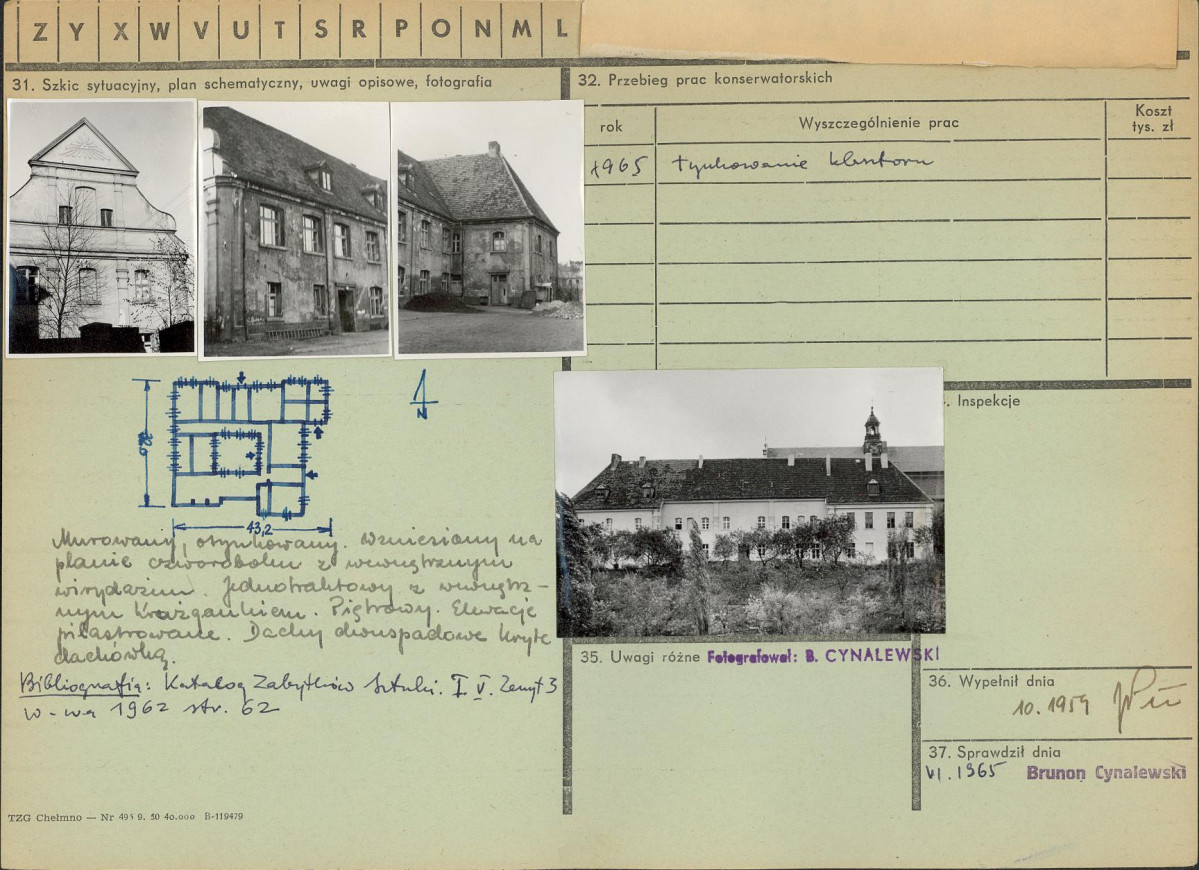 Z Y X W V U T S R P O N M L
31. Szkic sytuacyjny, plan schematyczny, uwagi opisowe, fotografia
N
43,2
Murowany, otynkowany. Wzniesiony na
planie czworoboku z wewnętrznym
wirydażem. Jednotraktowy z wewnętrz-
nym krużgankiem. Piętrowy. Elewacje
pilastrowane. Dachy dwuspadowe kryte
dachówką.
Bibliografia: Katalog Zabytków Sztuki. T. V. Zeszyt 3
W-wa 1962 str. 62
TZG Chełmno — Nr 495 9. 50 40.000 B-119479
32. Przebieg prac konserwatorskich
rok
Wyszczególnienie prac
Koszt
tys. zł
1965 tynkowanie klasztoru
Inspekcje
35. Uwagi różne Fotografował: B. CYNALEWSKI
36. Wypełnił dnia
10.1959
37. Sprawdził dnia
VI.1965 Brunon Cynalewski